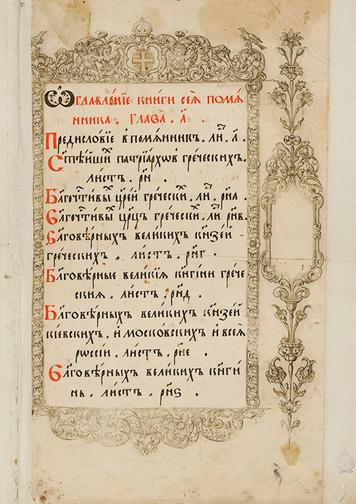 Ѡглавленїе книги сеѧ помѧ
нника. Глава. а҃.
Предисловїе в помѧнник. ли. а҃.
Ст҃ѣйши патрїархов греческихъ.
листъ. рн҃.
Бл҃гочтивы цр҃ей гречески. ли. рн҃а.
Бл҃гочтивы цр҃цъ гречески. ли. рн҃в.
Бл҃говѣрныхъ великихъ кн҃зей
греческихъ. листъ. рн҃г.
Бл҃говѣрные великиѧ кнѧгини грече
скиѧ. листъ. рн҃д.
Бл҃говѣрныхъ великихъ кн҃зей
кїевскихъ. и московскихъ и всеѧ
рѡссїи. листъ. рн҃е.
Бл҃говѣрныхъ великихъ кн҃ги
нь. листъ. рн҃ѕ.